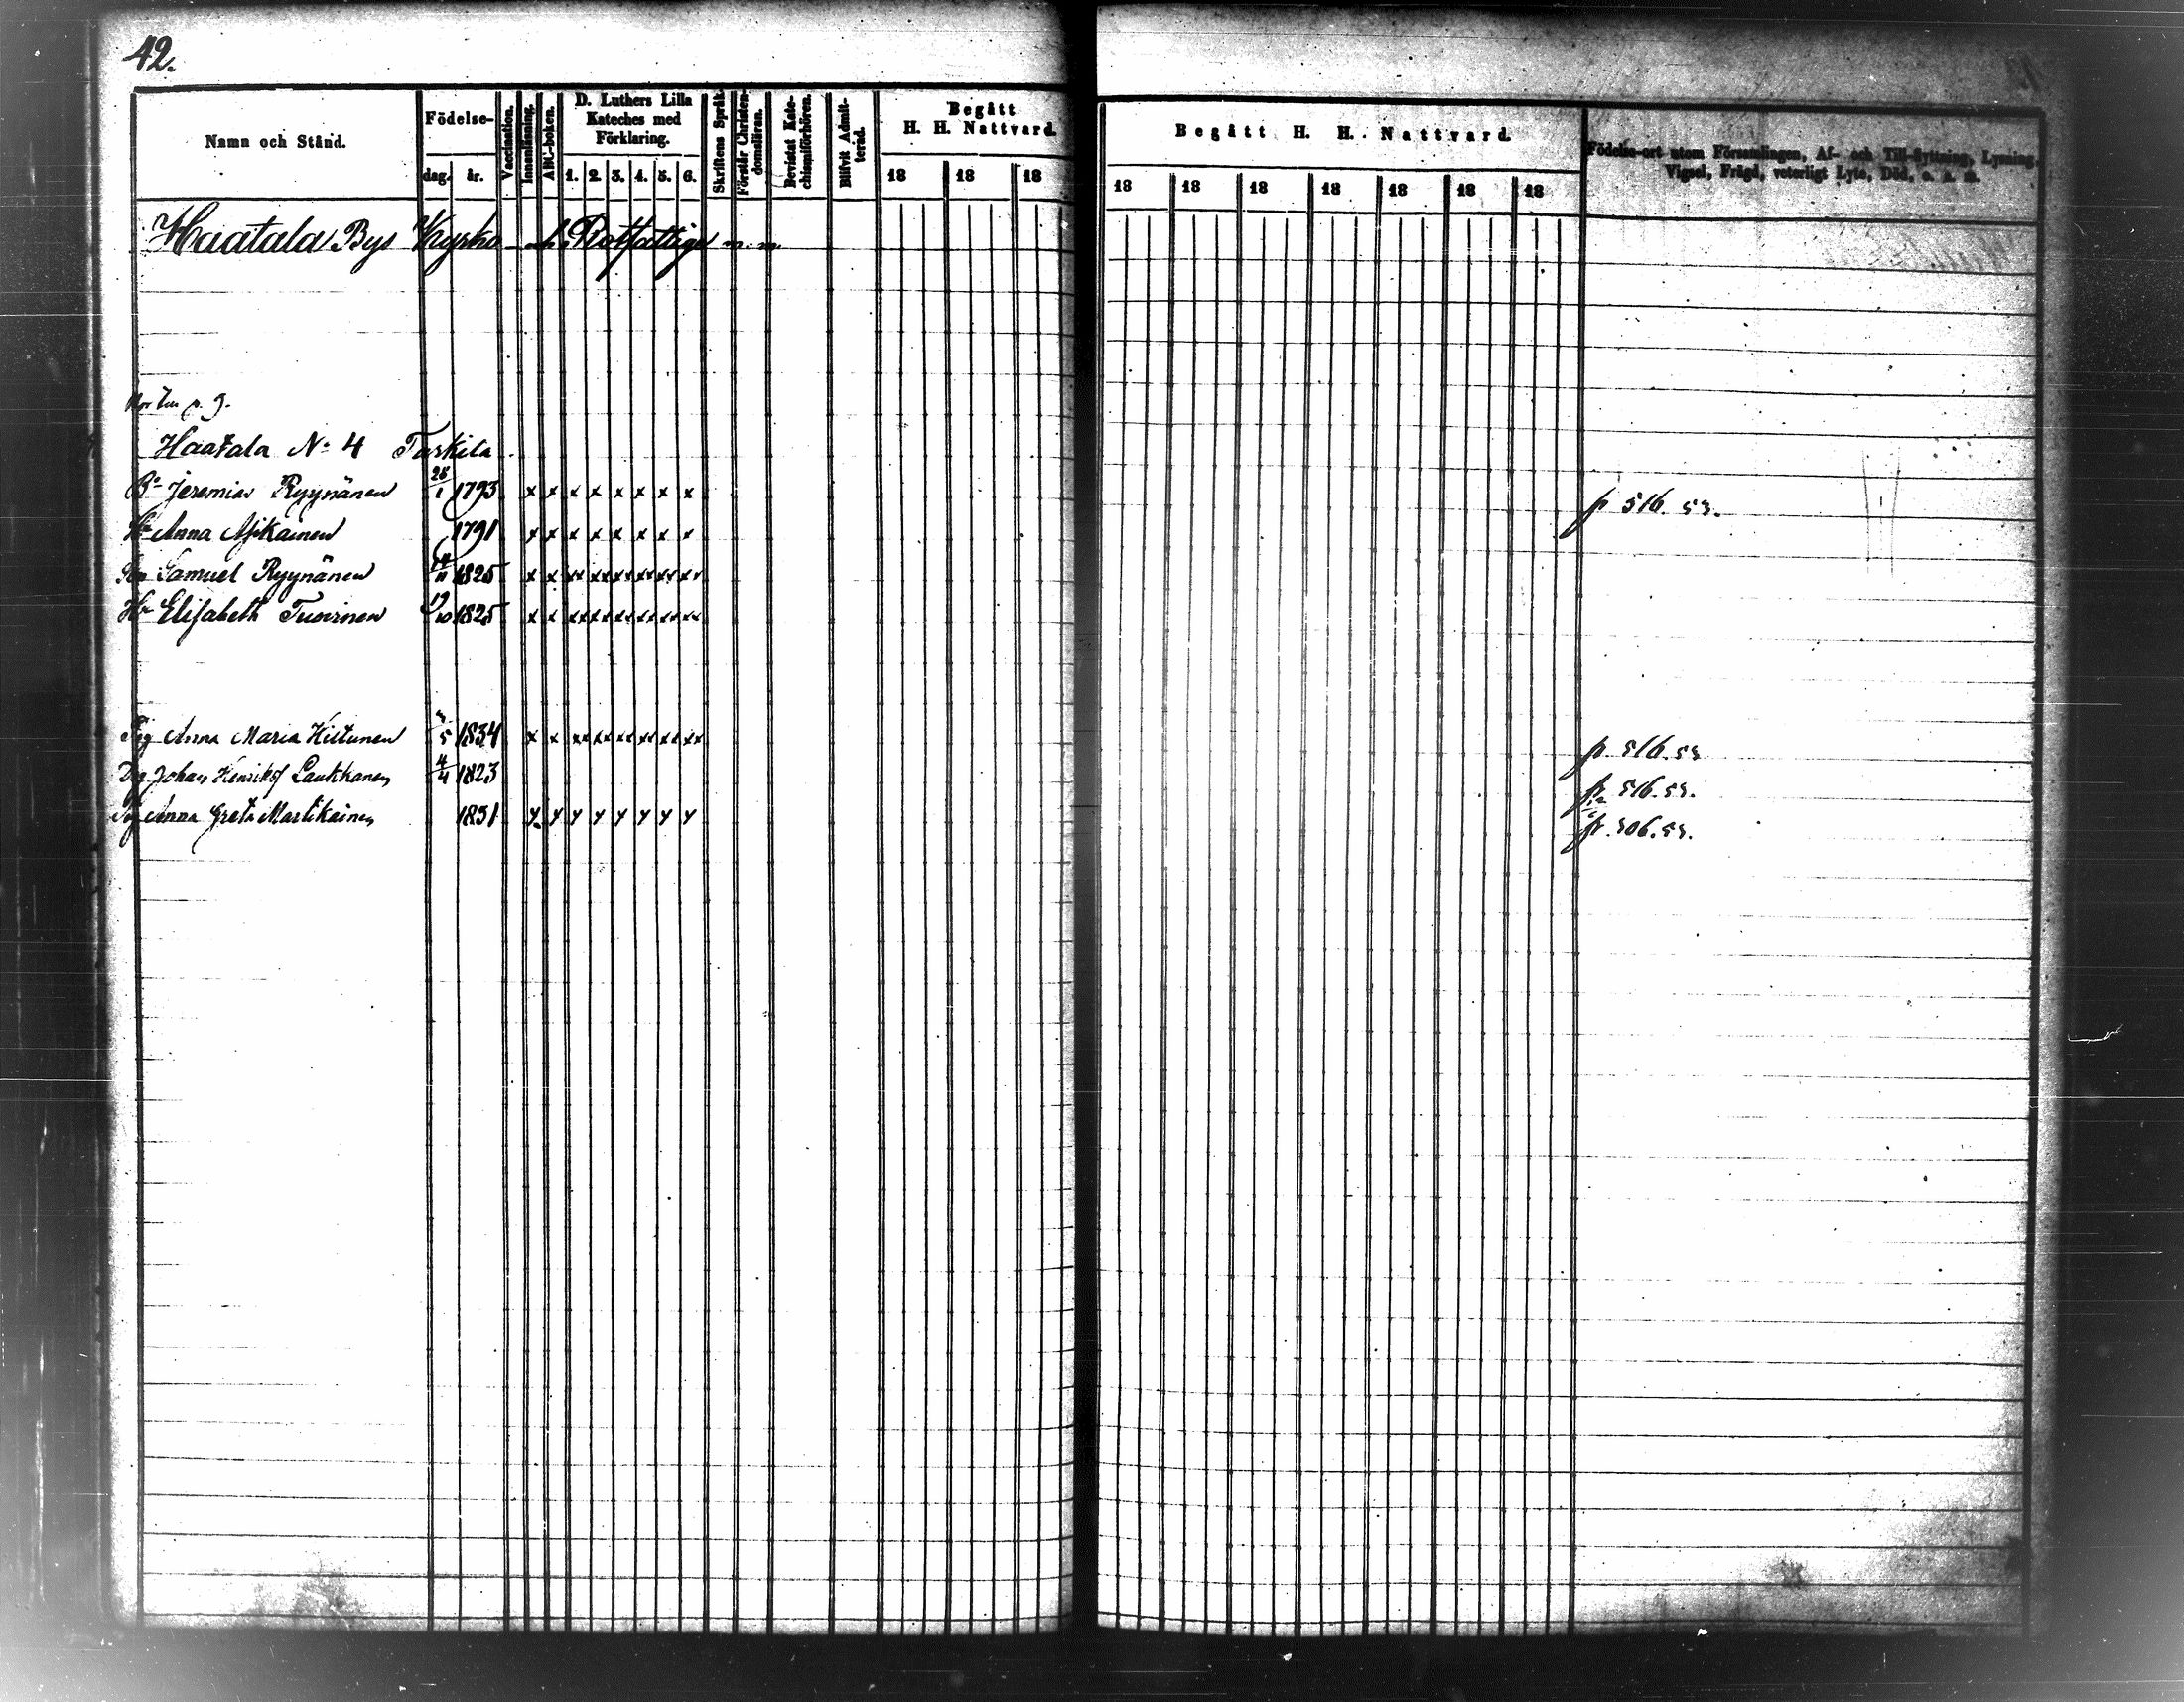 42.
Namn och Stånd.
Födelse-
dag.
år.
Vaccination.
Innanläsning.
ABC-boken.
D. Luthers Lilla
Kateches med
Förklaring.
1. 2. 3. 4. 5. 6.
Skriftens Språk.
Förstår Christen-
domsläran.
Bevistat Kate-
chismiförhören.
Blifvit Admit-
terad.
Begått
H. H. Nattvard.
18 18 18
Begått H. H. Nattvard.
18 18 18 18 18 18 18
Födelse-ort utom Församlingen, Af- och Till-flyttning, Lysning,
Vigsel, Frägd, veterligt Lyte, Död, o. s. m.
Haatala Bys Kyrko och Rotfattige m. m.
p. 9.
Haatala No 4 Taskila
Jeremias Ryynänen 28/1 1793 x x x x x x x x p 516. 53.
Hu Anna 1791 x x x x x x x x
Samuel Ryynänen 1825 x x xx xx xx xx xx xx
Hu Elisabeth Tuovinen 19/10 1825 x x xx xx xx xx xx xx
Pig Anna Maria Hiltunen 1834 x x xx xx xx xx xx xx p. 516. 53
Dg Johan Henriks Laukkanen 4/4 1823 p. 516. 53.
Pig Anna Greta Martikainen 1831 y y y y y y y y fr. 506. 53.